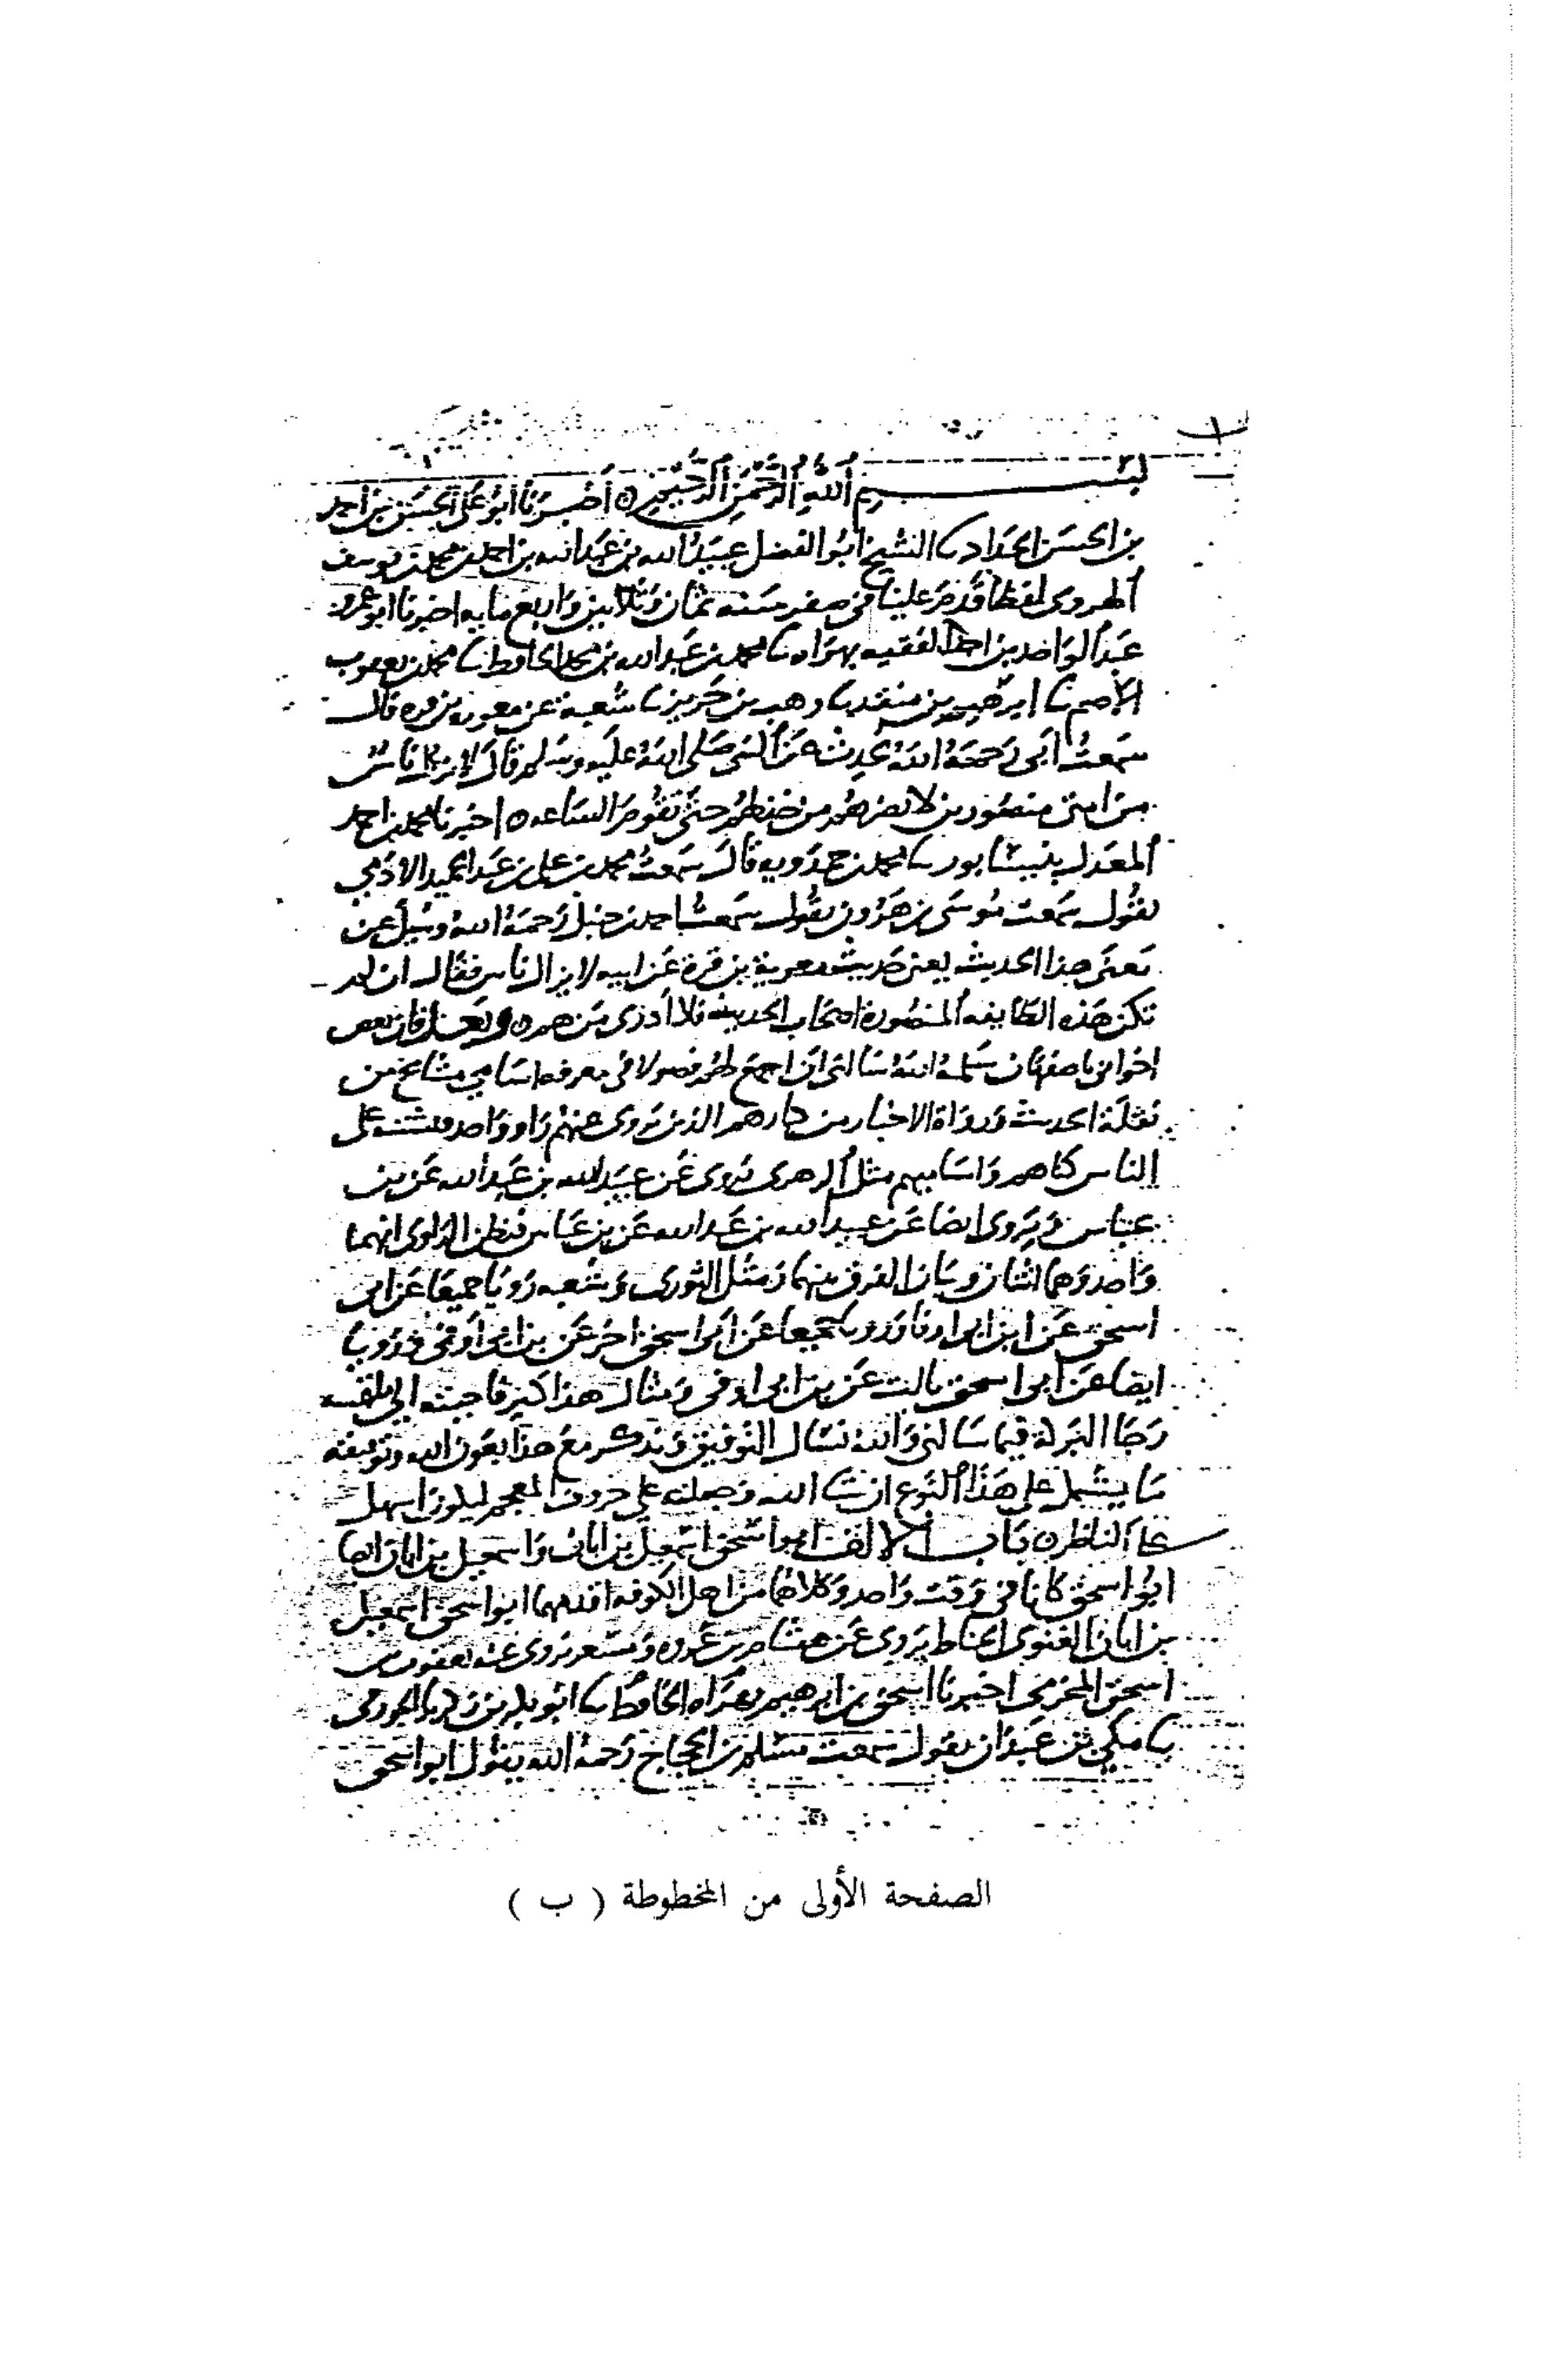 بسم الله الرحمن الرحيم ٥ أخبرنا أبو علي الحسن بن احمد
بن الحسن الحداد نا الشيخ ابو الفضل عبيد الله بن عبد الله بن احمد بن محمد بن يوسف
الهروي لفظا قدم علينا في صفر سنه ثمان وثلاثين واربع مايه اخبرنا ابو عمرو
عبد الواحد بن احمد الفقيه بهراه نا محمد بن عبد الله بن محمد الحافظ نا محمد بن يعقوب
الاصم نا ابرهيم بن منقذ نا وهب بن جرير نا شعبة عن معوية بن قره قال
سمعت ابي رحمه الله يحدث عن النبي صلى الله عليه وسلم قال لا يزال ناس
من امتي منصورين لا يضرهم من خذلهم حتى تقوم الساعه ٥ اخبرنا محمد بن احمد
المعدل بنيسابور نا محمد بن حمدويه قال سمعت محمد بن علي بن عبد الحميد الادمي
يقول سمعت موسى بن هرون يقول سمعت احمد بن حنبل رحمه الله وسئل عن
معنى هذا الحديث يعني حديث معوية بن قرة عن ابيه لا يزال ناس فقال ان لم
تكن هذه الطايفه المنصورة اصحاب الحديث فلا أدري من هم ٥ وبعد فان بعض
اخواني باصفهان سلمه الله سالني ان اجمع لهم فصولا في معرفه اسامي مشايخ من
نقلة الحديث ورواة الاخبار من كبارهم الذين يروي عنهم راو واحد فتشتبه على
الناس كناهم واساميهم مثل الزهري يروي عن عبيد الله بن عبد الله عن بن
عباس ويروي ايضا عن عبيد الله بن عبد الله عن بن عباس فيظن الراوي انهما
واحد وهما اثنان وبيان الفرق بينهما ومثل الثوري وشعبه رويا جميعا عن ابي
اسحق عن ابن ابي اوفا ورويا جميعا عن ابي اسحق اخر عن بن ابي اوفى ورويا
ايضا عن ابي اسحق ثالث عن بن ابي اوفى ومثال هذا كثير فاجبته الى ملتمسه
رجا البركة فيما سالني والله نسال التوفيق ونذكر مع هذا بعون الله وتوفيقه
ما يشتمل على هذا النوع ان شا الله وجعلته على حروف المعجم ليكون اسهل
على الناظر ٥ باب الالف ابو اسحق اسمعيل بن ابان واسمعيل بن ابان ايضا
ابو اسحق كانا في وقت واحد وكلاهما من اهل الكوفه اقدمهما ابو اسحق اسمعيل
بن ابان الغنوي الحناط يروي عن هشام بن عروه ومسعر يروي عنه يعقوب بن
اسحق المخرمي اخبرنا اسحق بن ابرهيم بهراه الحافظ نا ابو بكر بن زكريا الجوزقي
نا مكي بن عبدان يقول سمعت مسلم بن الحجاج رحمه الله يقول ابو اسحق
الصفحة الأولى من المخطوطة ( ب )